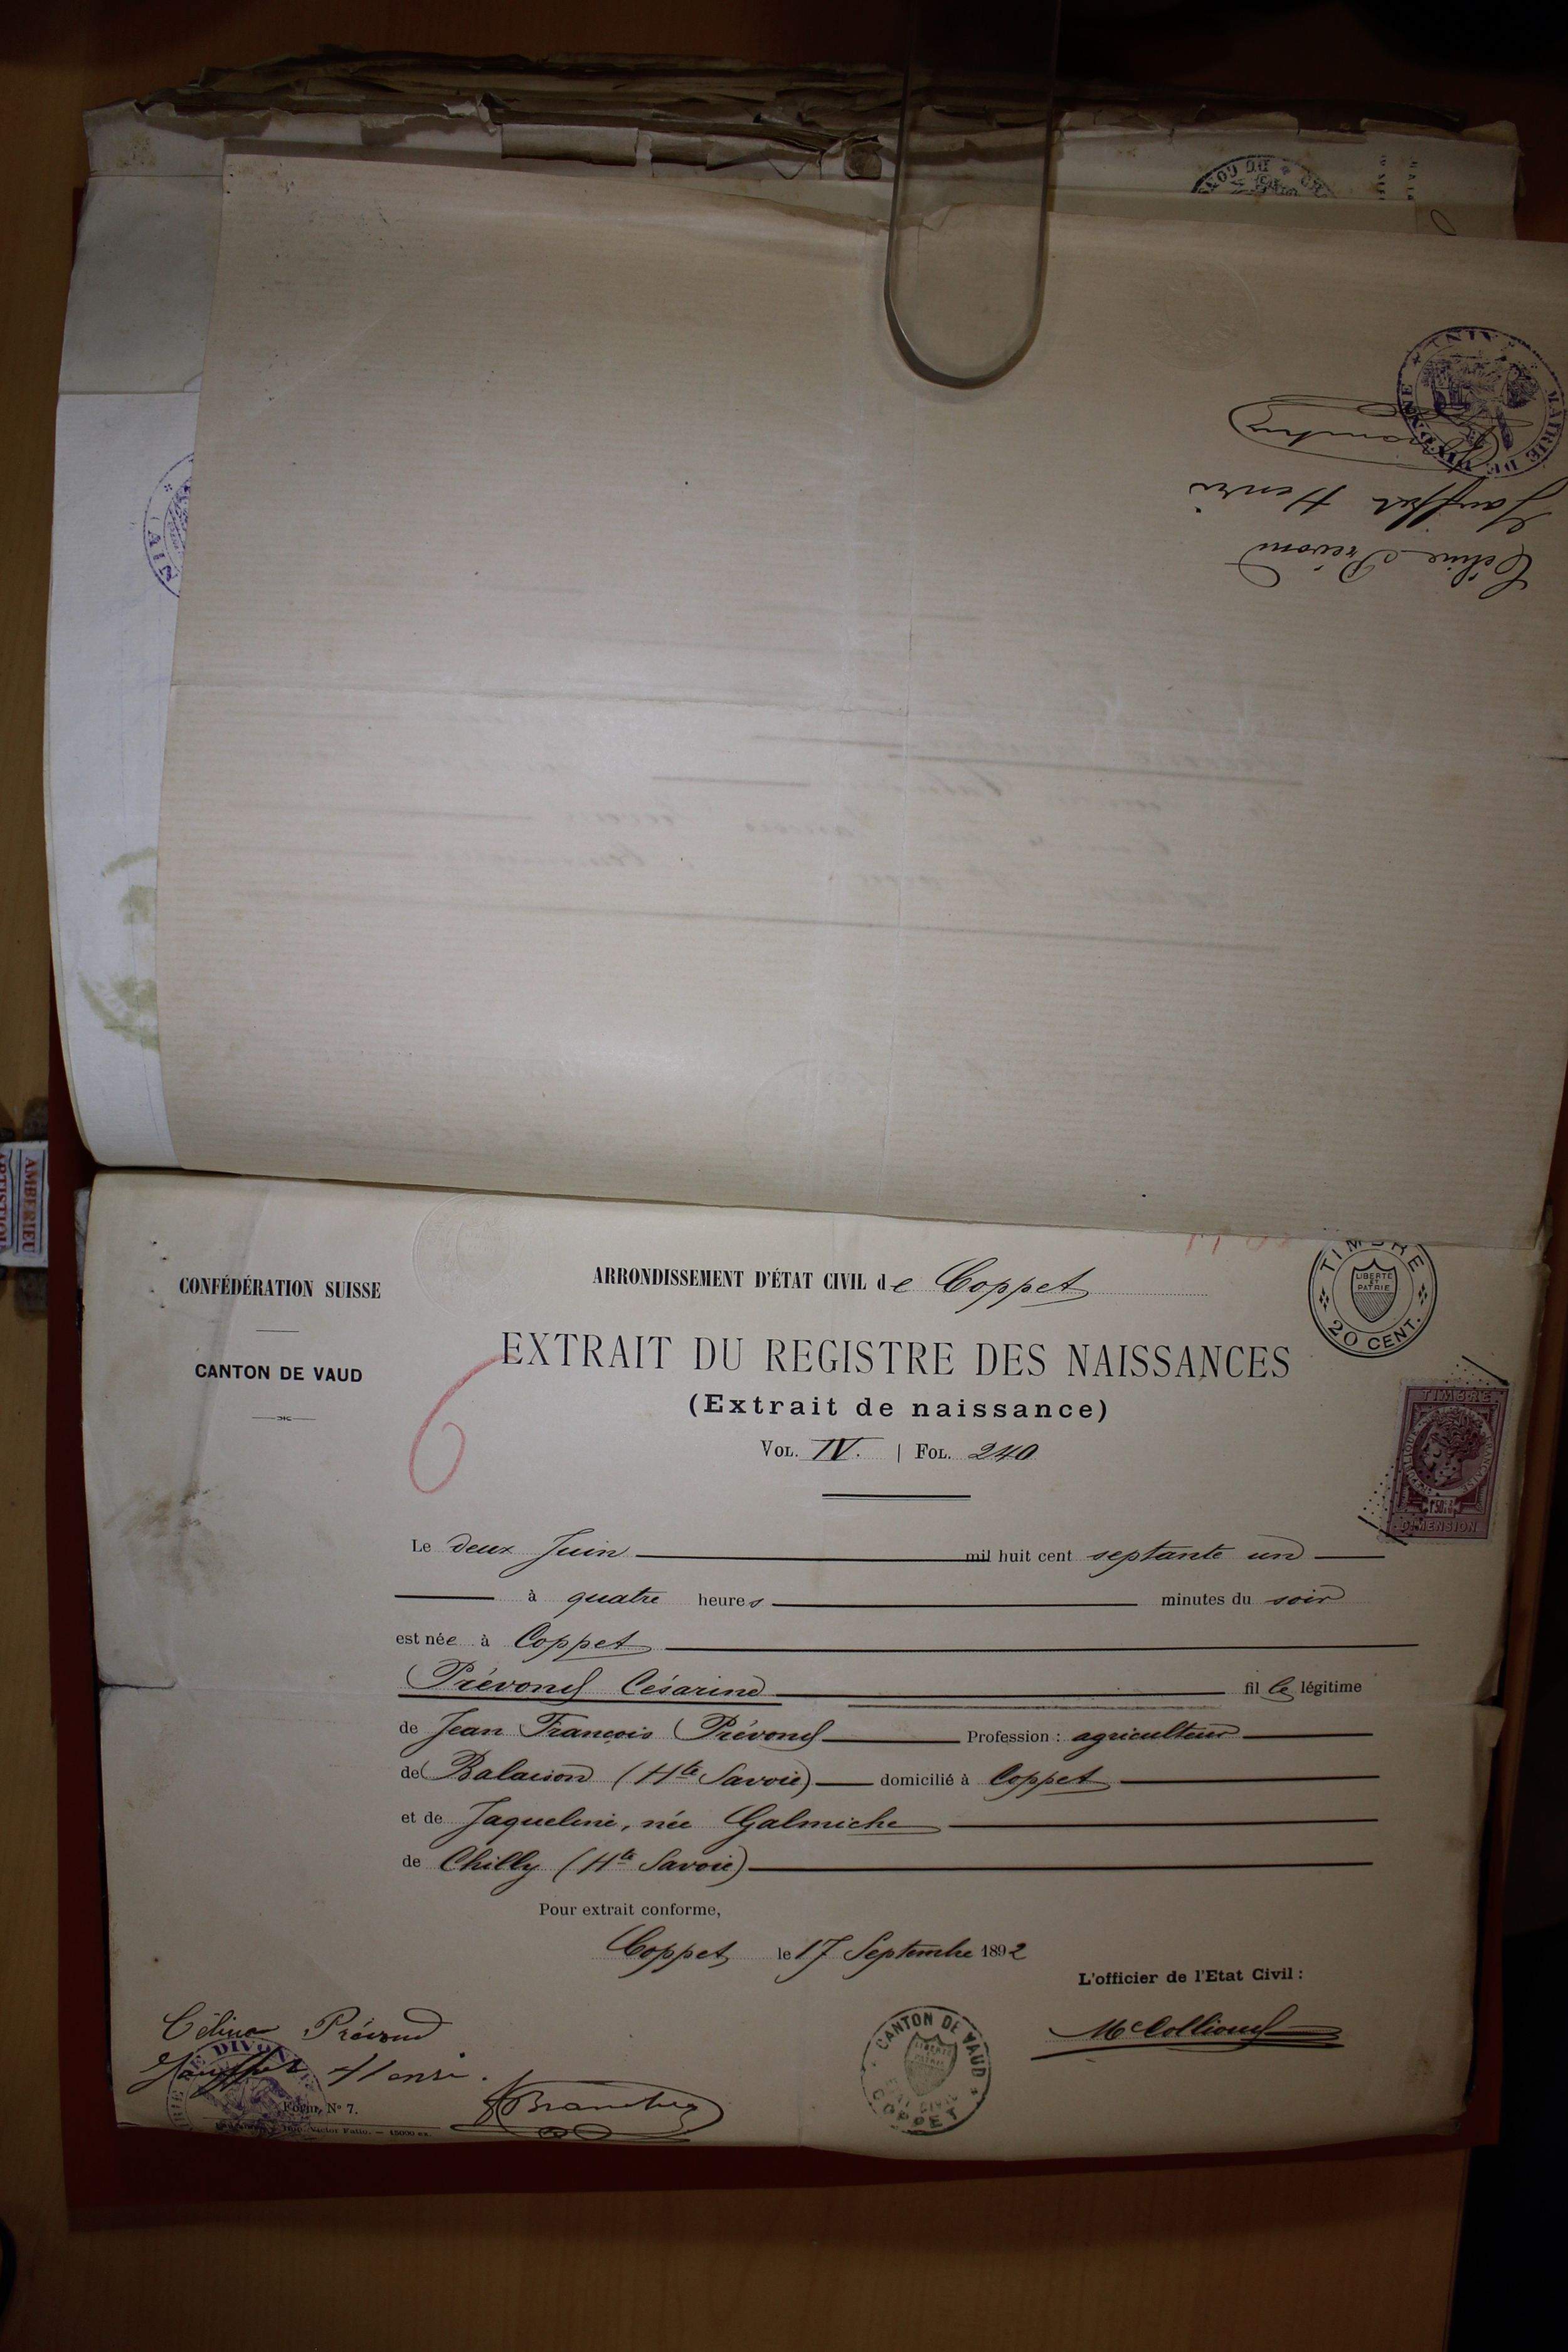 MAIRIE DE DIVONNE
Jauffret Henri
Céline Prévond
AMBERIEU
CONFÉDÉRATION SUISSE
CANTON DE VAUD
ARRONDISSEMENT D'ÉTAT CIVIL de Coppet
TIMBRE
LIBERTÉ ET PATRIE
20 CENT.
EXTRAIT DU REGISTRE DES NAISSANCES
(Extrait de naissance)
6
VOL. IV. | FOL. 240
TIMBRE
DIMENSION
Le deux Juin mil huit cent septante un
à quatre heures minutes du soir
est née à Coppet
Prévond Césarine fille légitime
de Jean François Prévond Profession : agriculteur
de Balaison (Hte Savoie) domicilié à Coppet
et de Jaqueline, née Galmiche
de Chilly (Hte Savoie)
Pour extrait conforme,
Coppet le 17 Septembre 1892
L'officier de l'Etat Civil :
Céline Prévond
Jauffret Henri.
Form. No 7.
CANTON DE VAUD
ETAT CIVIL
COPPET